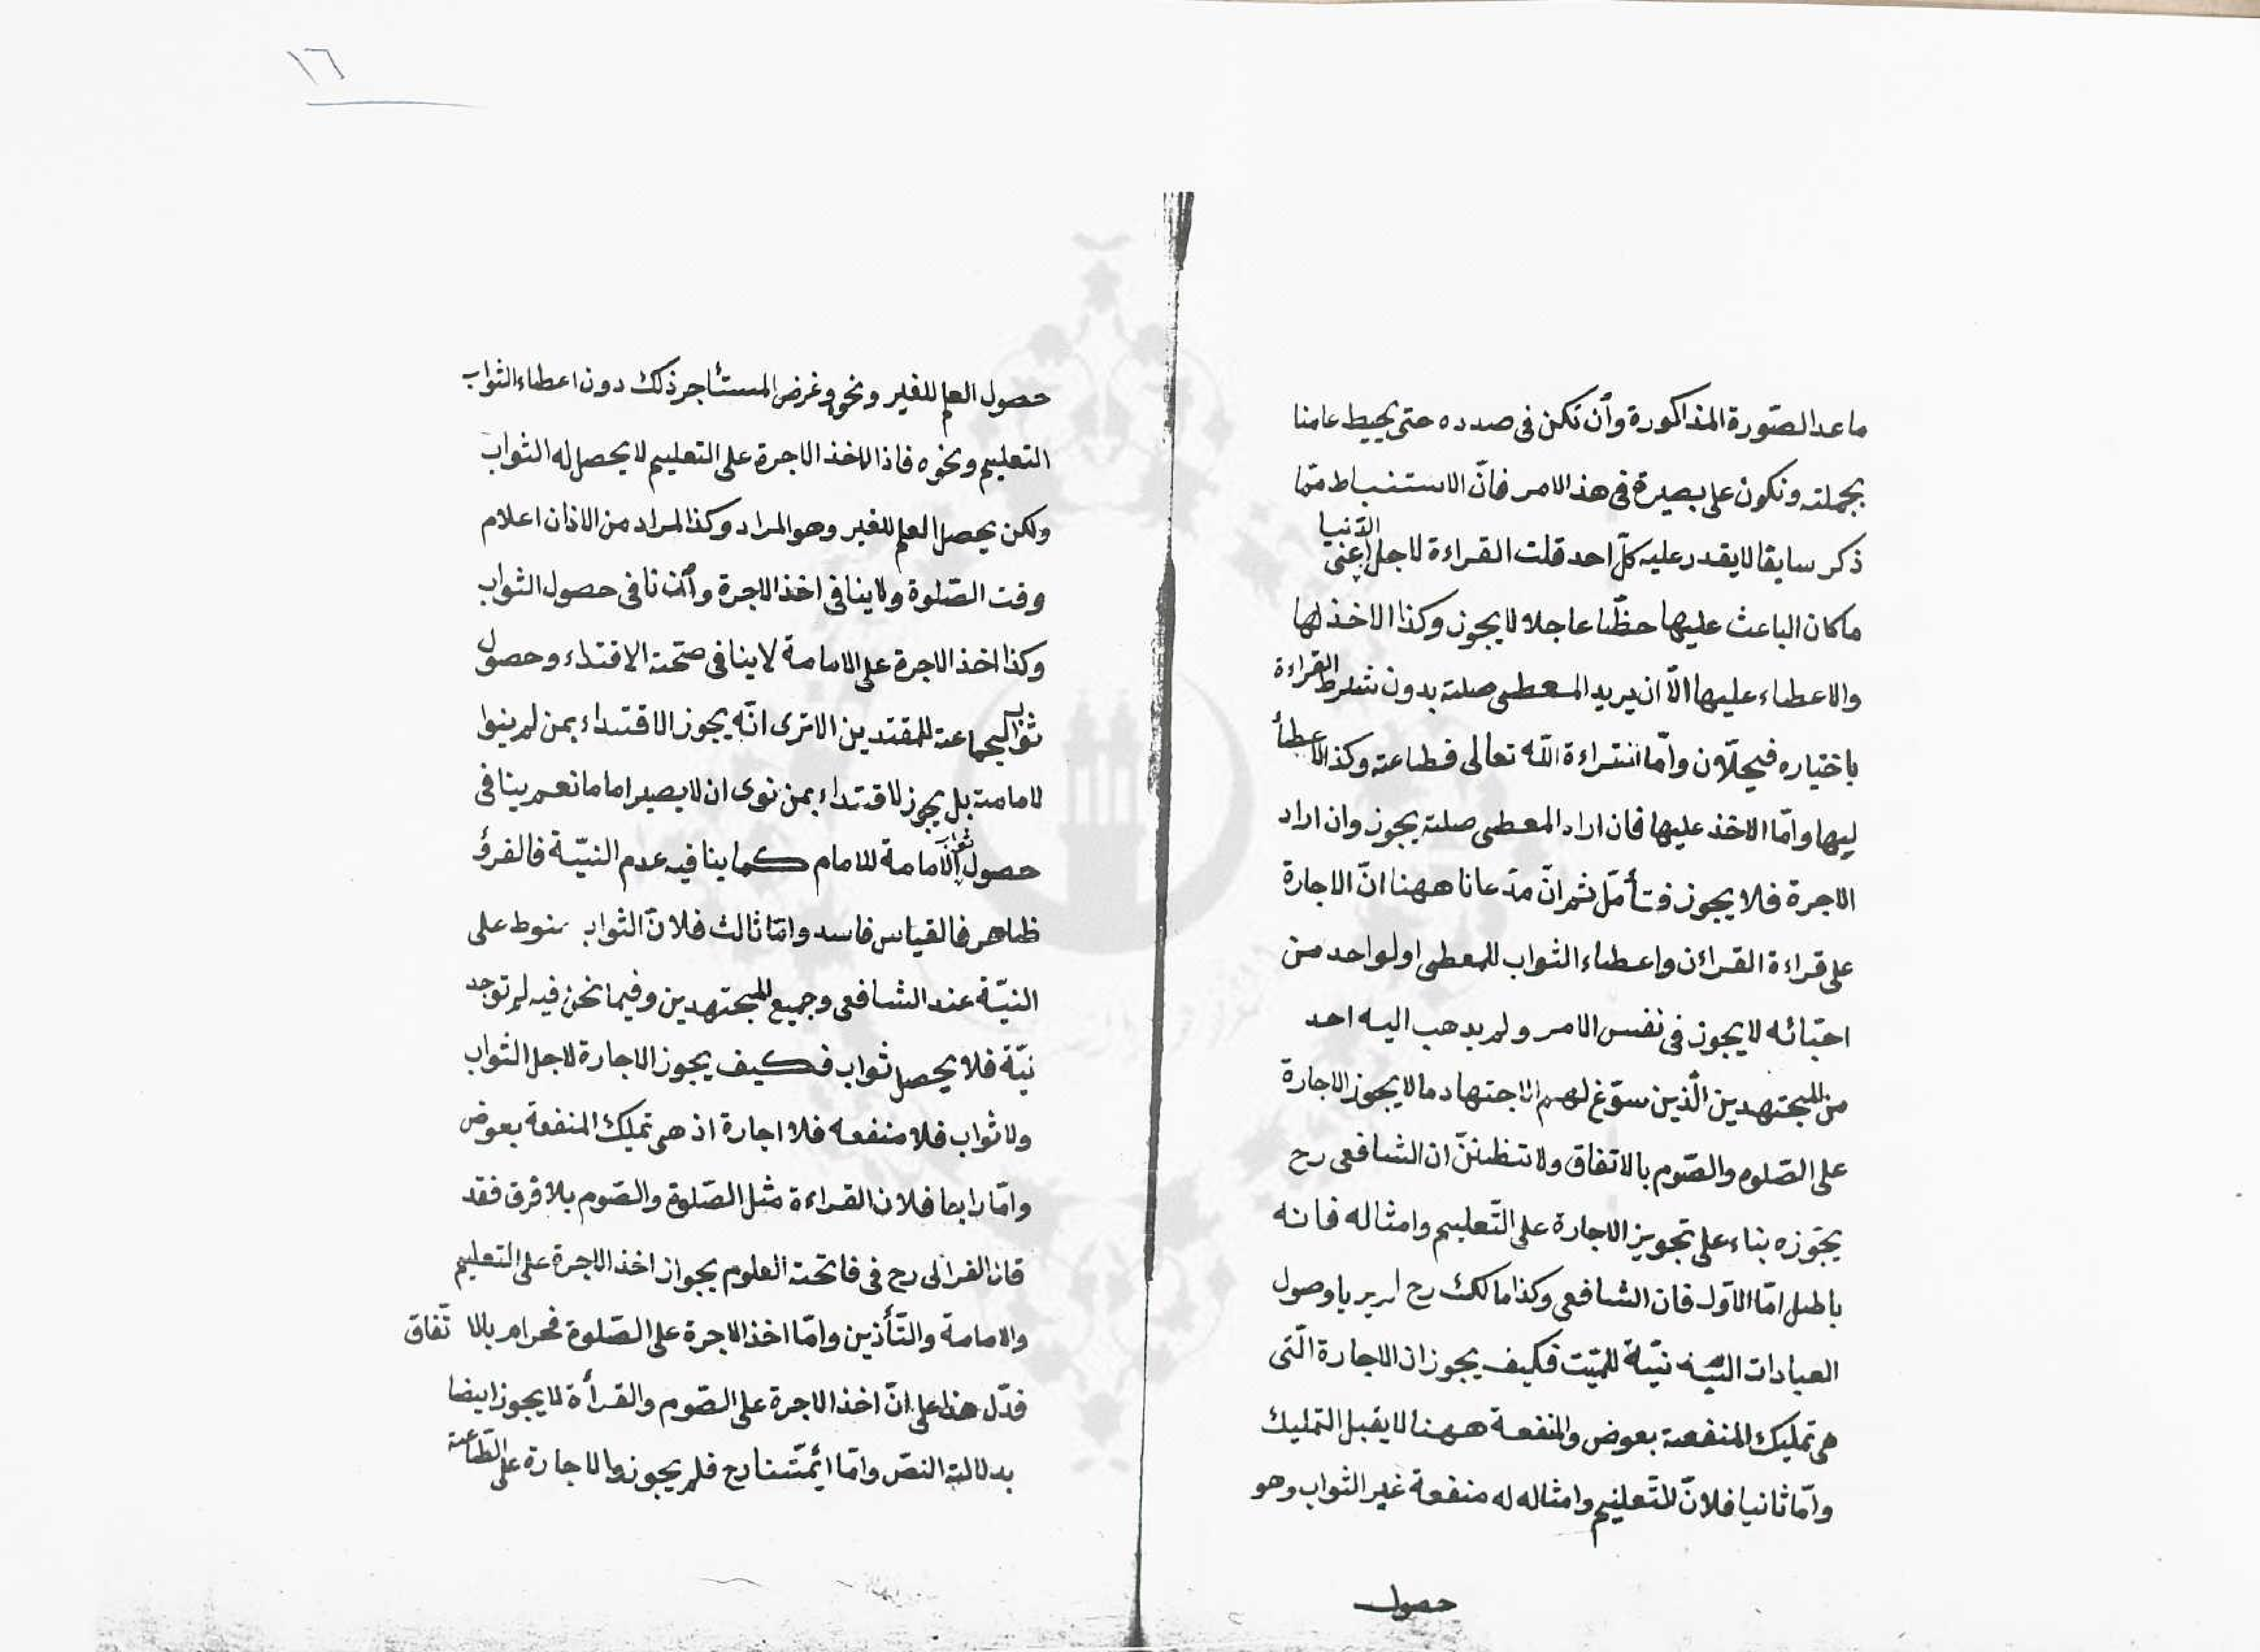 ١٦
ما عدا الصّورة المذاكورة وأن نكن فى صدده حتى يحيط عامنا
بجملته ونكون على بصيرة فى هذا الامر فانّ الاستنباط ممّا
ذكر سابقا لا يقدر عليه كلّ احد قلت القراءة لاجل الدّنيا اعنى
ما كان الباعث عليها حظّا عاجلا لا يجوز وكذا الاخذ لها
والاعطاء عليها الّا ان يريد المعطى صلته بدون شرط القراءة
باختياره فيحلّان وامّا القراءة اللّه تعالى فطاعته وكذا الاعطأ
ليها وامّا الاخذ عليها فان اراد المعطى صلته يجوز وان اراد
الاجرة فلا يجوز فتأمّل ثم انّ مدّعانا ههنا انّ الاجارة
على قراءة القرآن واعطاء الثواب للمعطى او لواحد من
احبّائه لا يجوز فى نفس الامر ولم يدهب اليه احد
من المجتهدين الّذين سوّغ لهم الاجتهاد مالا يجوز الاجارة
على الصّلوه والصّوم بالاتفاق ولا تظننّ ان الشافعى رح
يجّوزه بناء على تجويز الاجارة على التّعليم وامثاله فانه
باطل امّا الاوّل فان الشافعى وكذا مالك رح لم ير يا وصول
العبادات البّنيه نيّة للميّت فكيف يجوزان الاجارة الّتى
هى تمليك المنفعة بعوض والمنفعة ههنا لا يقبل التمليك
وامّا ثانيا فلانّ للتّعليم وامثاله له منفعة غير الثواب وهو
حصول
حصول العلم للغير ونحوه وغرض المستأجر ذلك دون اعطاء الثواب
التعليم ونحوه فاذا الاخذ الاجرة على التعليم لا يحصل له الثواب
ولكن يحصل العلم للغير وهو المراد وكذا المراد من الاذان اعلام
وقت الصّلوة ولا ينافى اخذ الاجرة وأن نافى حصول الثواب
وكذا اخذ الاجرة على الامامة لا ينافى صحّة الاقتداء وحصول
ثواب الجماعة للمقتدين الا ترى انّه يجوز الاقتداء بمن لم ينوا
لامامة بل يجوز لاقتداء بمن نوى ان لا يصير اماما نعم ينافى
حصول ثواب الامامة للامام كما ينافيه عدم النيّة فالفرق
ظاهر فالقياس فاسد وامّا ثالث فلانّ الثواب منوط على
النيّة عند الشافعى وجميع المجتهدين وفيما نحن فيه لم توجد
نيّة فلا يحصل ثواب فكيف يجوز الاجارة لاجل الثواب
ولا ثواب فلا منفعه فلا اجارة اذ هى تمليك المنفعة بعوض
وامّا رابعا فلان القراءة مثل الصّلوة والصّوم بلا فرق فقد
قال الغزالى رح فى فاتحة العلوم يجواز اخذ الاجرة على التعليم
والامامة والتّأذين وامّا اخذ الاجرة على الصّلوة فحرام بالاتّفاق
فدّل هذا على انّ اخذ الاجرة على الصّوم والقرأة لا يجوز ايضا
بدلالة النصّ وامّا ائمّتنا رح فلم يجوزوا الاجارة على الطّاعة